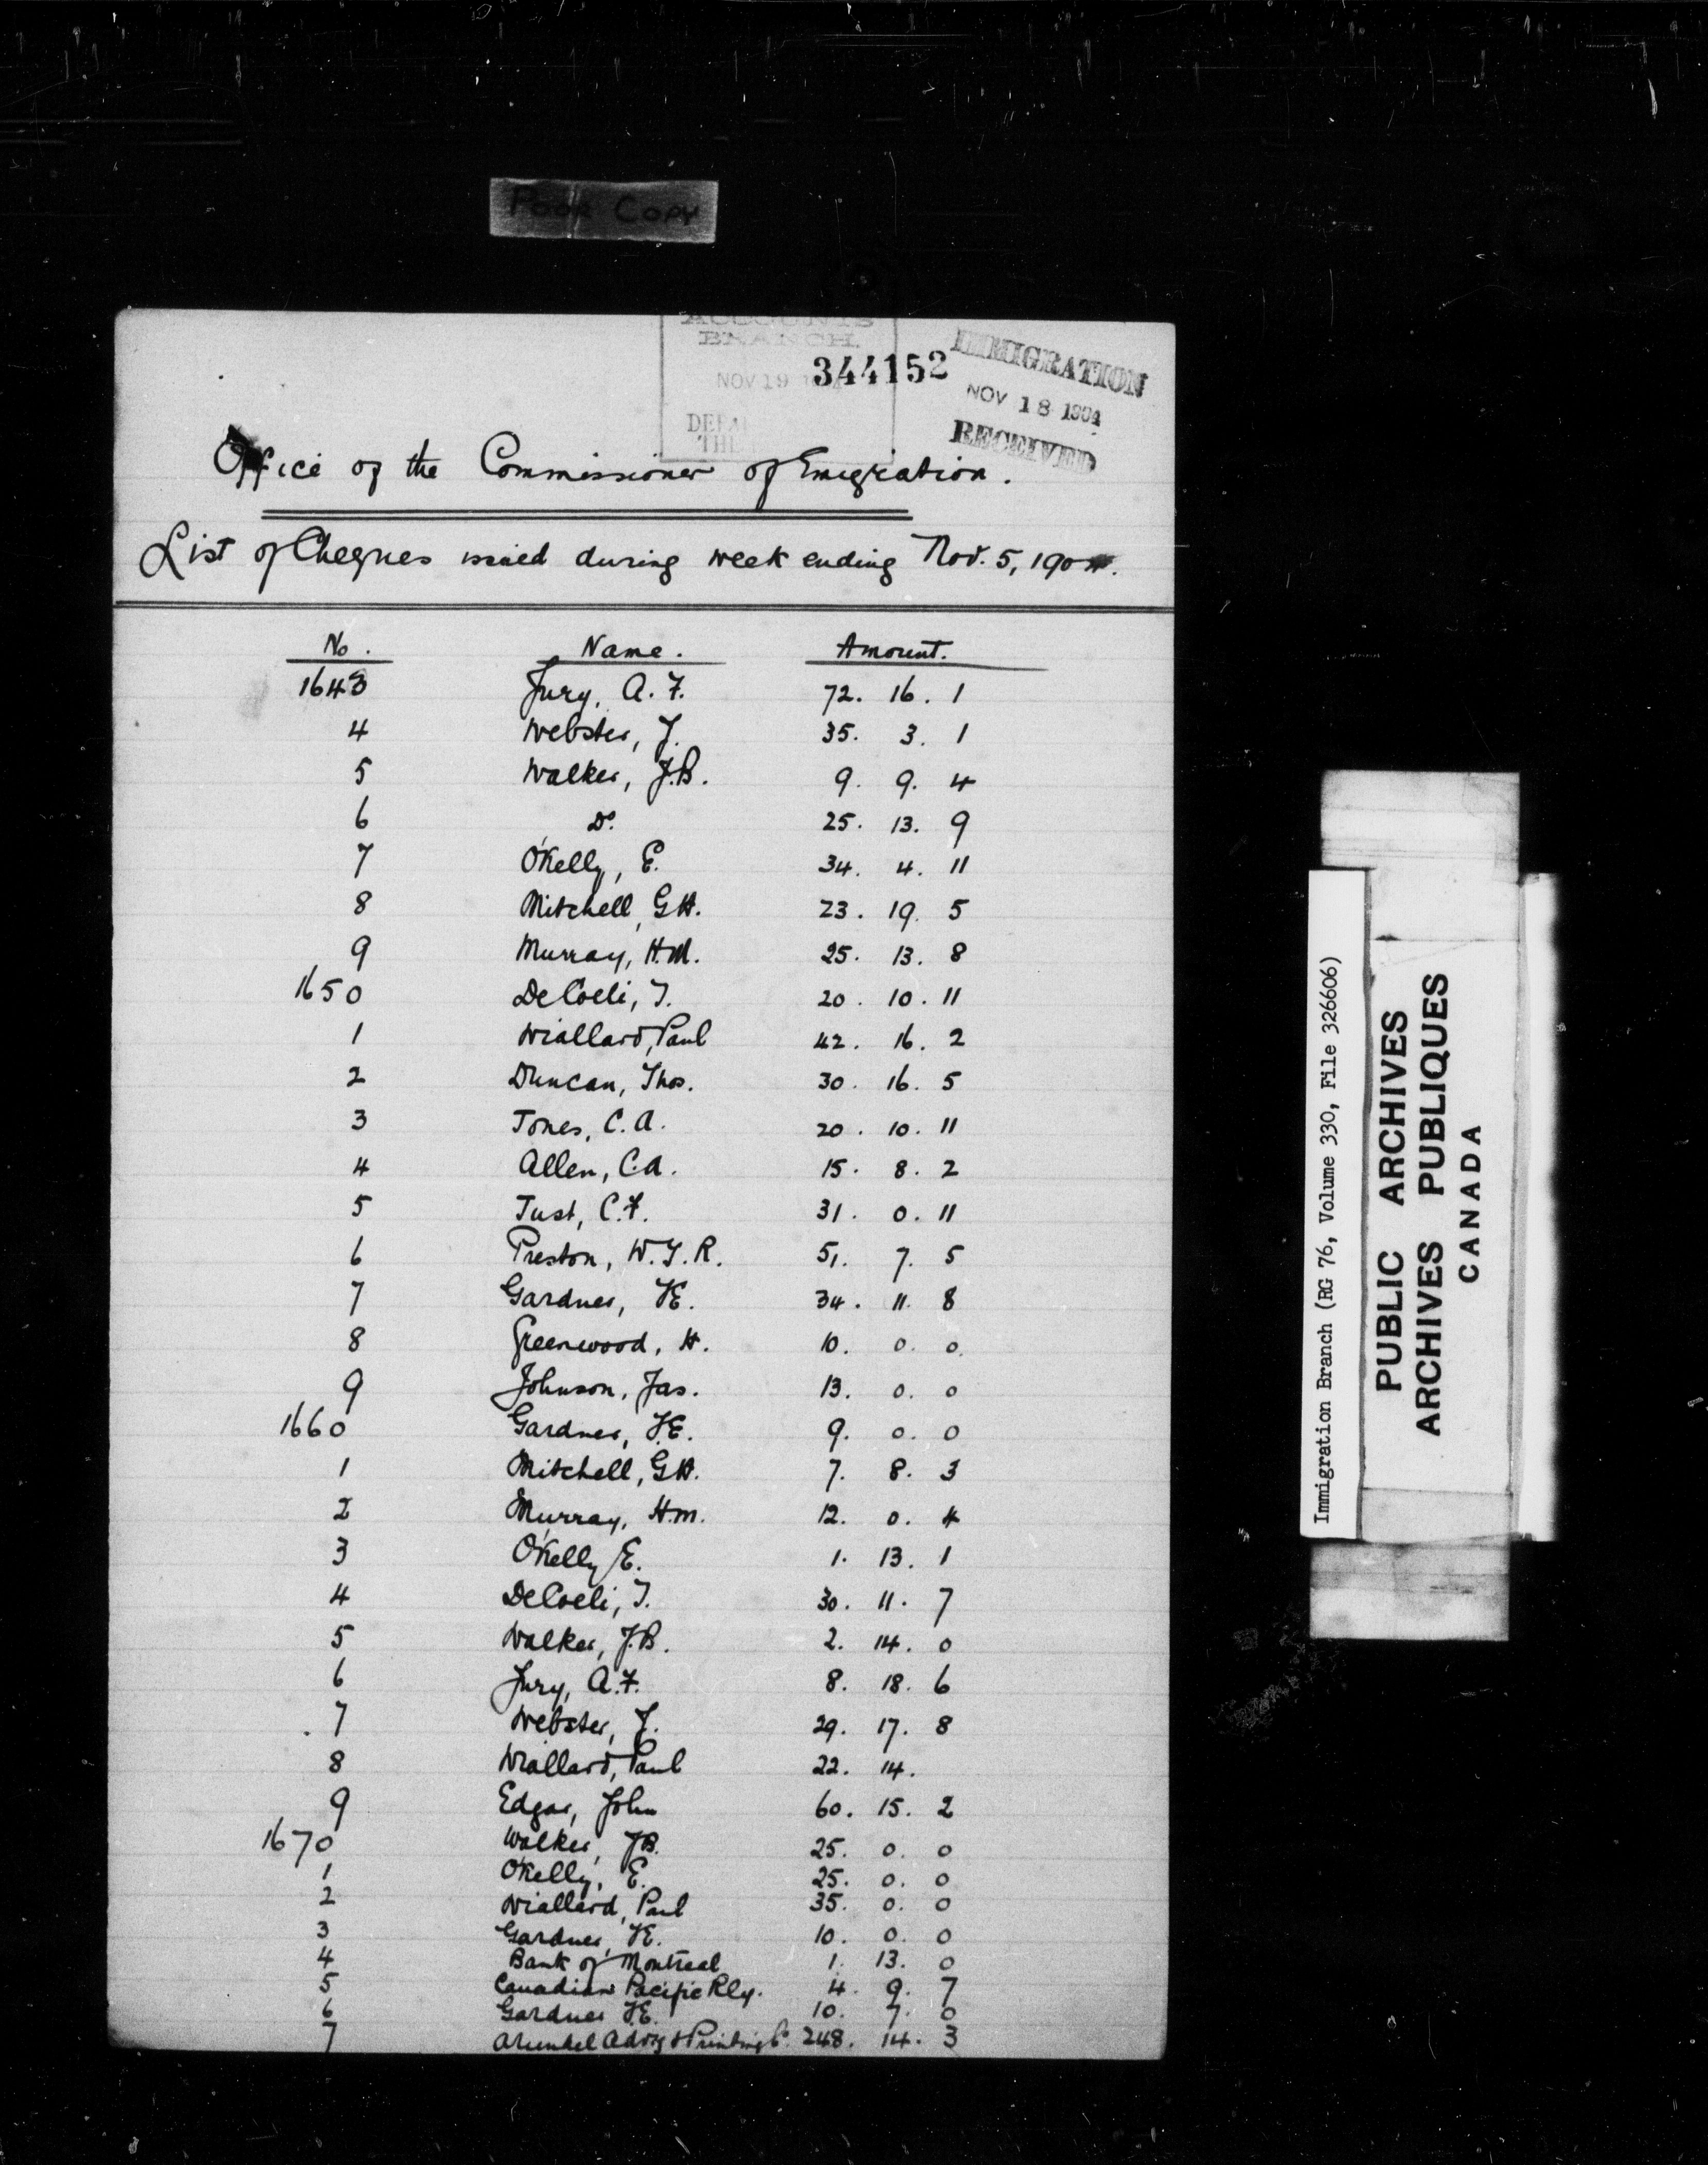 Poor Copy
ACCOUNTS
BRANCH.
NOV 19
344152
IMMIGRATION
NOV 18 1904
RECEIVED
Office of the Commissioner of Emigration.
List of Cheques issued during week ending Nov. 5, 1904.
No. Name. Amount.
1643 Jury, A. F. 72. 16. 1
4 Webster, J. 35. 3. 1
5 Walker, J.B. 9. 9. 4
6 Do. 25. 13. 9
7 O'Kelly, E. 34. 4. 11
8 Mitchell, G.H. 23. 19. 5
9 Murray, H.M. 25. 13. 8
1650 DeCoeli, T. 20. 10. 11
1 Wiallard, Paul 42. 16. 2
2 Duncan, Thos. 30. 16. 5
3 Jones, C.A. 20. 10. 11
4 Allen, C.A. 15. 8. 2
5 Just, C.F. 31. 0. 11
6 Preston, W.T.R. 51. 7. 5
7 Gardner, F.E. 34. 11. 8
8 Greenwood, H. 10. 0. 0.
9 Johnson, Jas. 13. 0. 0
1660 Gardner, F.E. 9. 0. 0
1 Mitchell, G.H. 7. 8. 3
2 Murray, H.M. 12. 0. 4
3 O'Kelly E. 1. 13. 1
4 DeCoeli, T. 30. 11. 7
5 Walker, J.B. 2. 14. 0
6 Jury, A.F. 8. 18. 6
7 Webster, J. 29. 17. 8
8 Wiallard, Paul 22. 14.
9 Edgar, John 60. 15. 2
1670 Walker, J.B. 25. 0. 0
1 O'Kelly, E. 25. 0. 0
2 Wiallard, Paul 35. 0. 0
3 Gardner, F.E. 10. 0. 0
4 Bank of Montreal 1. 13. 0
5 Canadian Pacific Rly. 4. 9. 7
6 Gardner F.E. 10. 7. 0
7 Arundel Advtg & Printing Co. 248. 14. 3
Immigration Branch (RG 76, Volume 330, File 326606)
PUBLIC ARCHIVES
ARCHIVES PUBLIQUES
CANADA